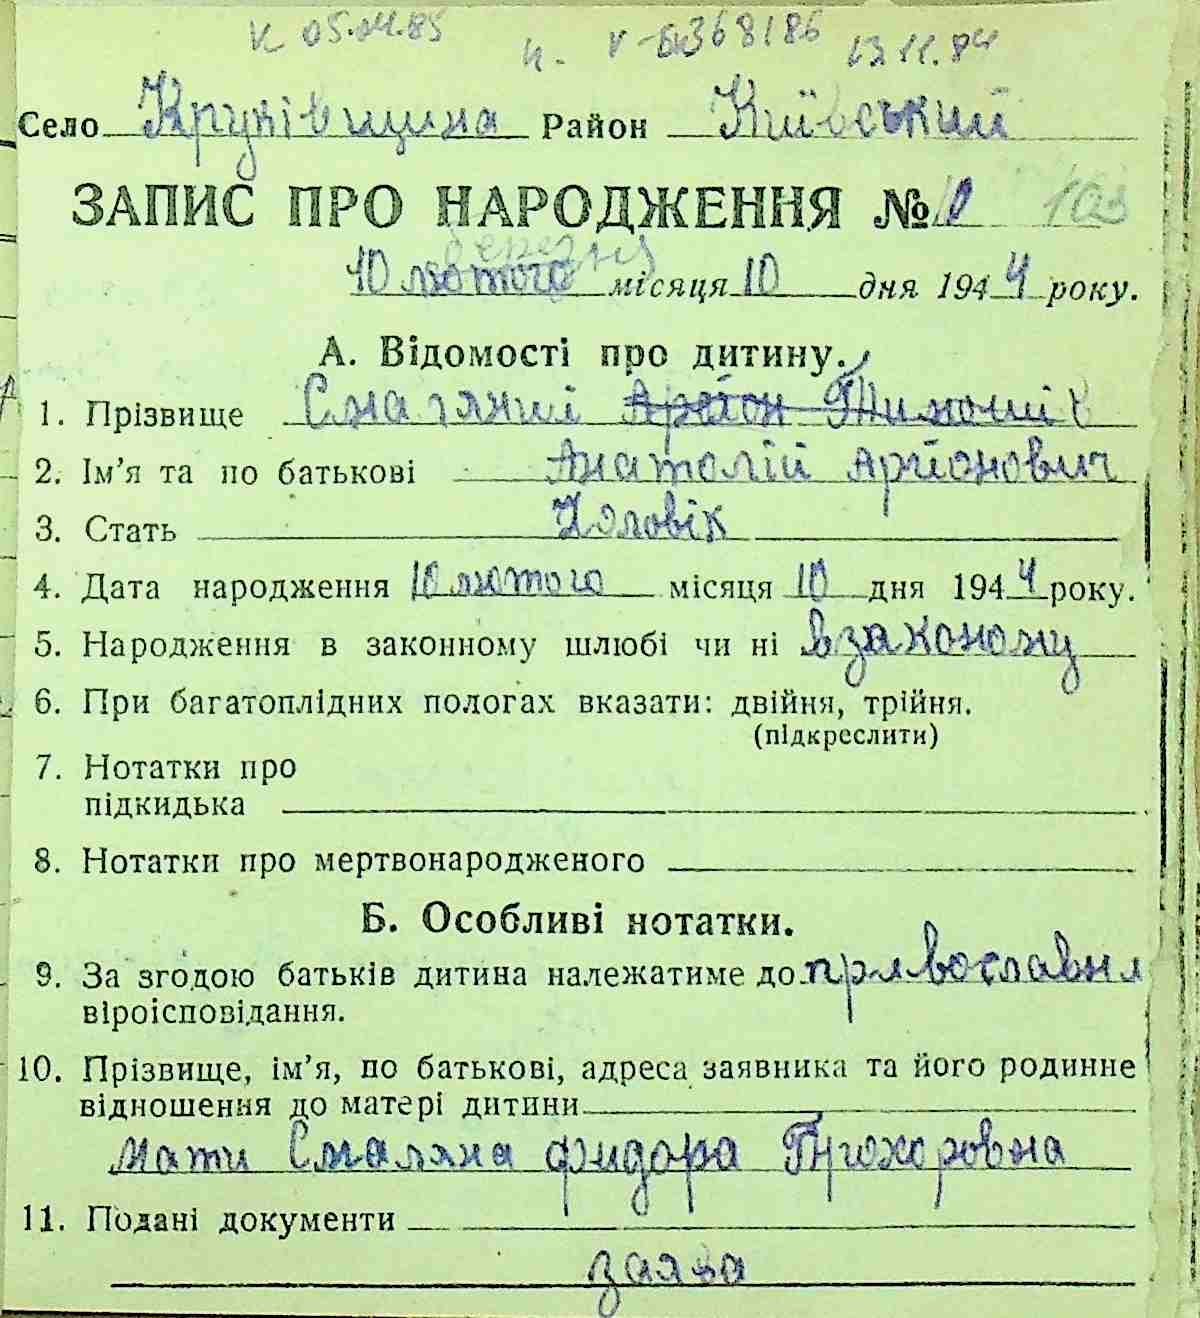 к 05.04.85 н. V-БК 368186 13.11.84
Село Круківщина Район Київський
ЗАПИС ПРО НАРОДЖЕННЯ № 10 103
березня
10 лютого місяця 10 дня 1944 року.
А. Відомості про дитину.
1. Прізвище Смаляний Арйон Тимоший
2. Ім’я та по батькові Анатолій Арйонович
3. Стать Чоловік
4. Дата народження 10 лютого місяця 10 дня 1944 року.
5. Народження в законному шлюбі чи ні взаконому
6. При багатоплідних пологах вказати: двійня, трійня.
(підкреслити)
7. Нотатки про
підкидька
8. Нотатки про мертвонародженого
Б. Особливі нотатки.
9. За згодою батьків дитина належатиме до православня
віроісповідання.
10. Прізвище, ім’я, по батькові, адреса заявника та його родинне
відношення до матері дитини
мати Смаляна Фидора Прохоровна
11. Подані документи
заява